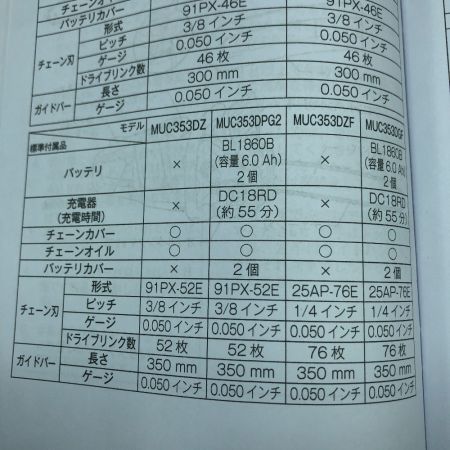 チェーンオイル
バッテリカバー 91PX-46E 91PX-46E
チェーン刃 形式 3/8 インチ 3/8 インチ
ピッチ 0.050 インチ 0.050 インチ
ゲージ 46 枚 46 枚
ドライブリンク数 300 mm 300 mm
ガイドバー 長さ 0.050 インチ 0.050 インチ
ゲージ
モデル MUC353DZ MUC353DPG2 MUC353DZF
標準付属品
バッテリ × BL1860B (容量 6.0 Ah) 2 個 × BL1860B (容量 6.0 Ah) 2 個
充電器 (充電時間) × DC18RD (約 55 分) × DC18RD (約 55 分)
チェーンカバー ○ ○ ○ ○
チェーンオイル ○ ○ ○ ○
バッテリカバー × 2 個 × 2 個
チェーン刃 形式 91PX-52E 91PX-52E 25AP-76E 25AP-76E
ピッチ 3/8 インチ 3/8 インチ 1/4 インチ 1/4 インチ
ゲージ 0.050 インチ 0.050 インチ 0.050 インチ 0.050 インチ
ドライブリンク数 52 枚 52 枚 76 枚 76 枚
ガイドバー 長さ 350 mm 350 mm 350 mm 350 mm
ゲージ 0.050 インチ 0.050 インチ 0.050 インチ 0.050 インチ